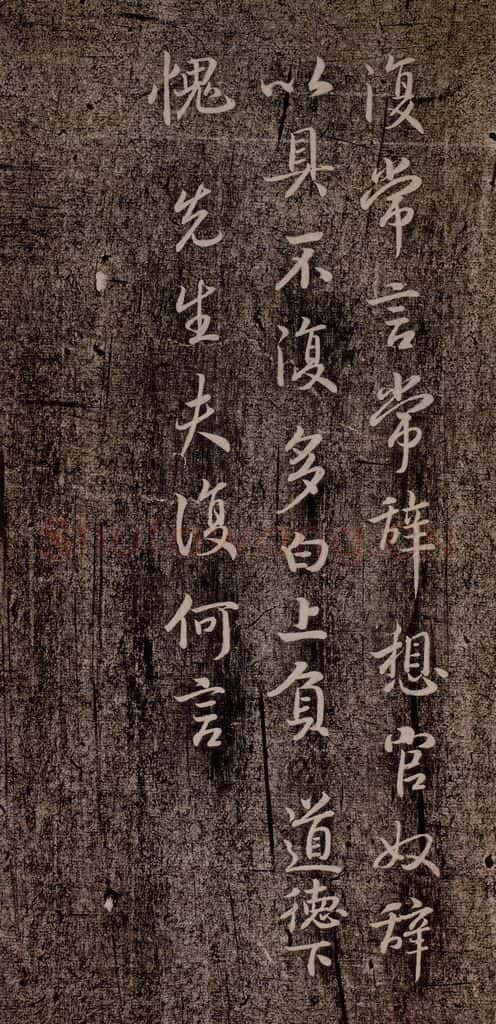 復常言常辞想官奴辞
以具不復多白上負道德下
愧先生夫復何言